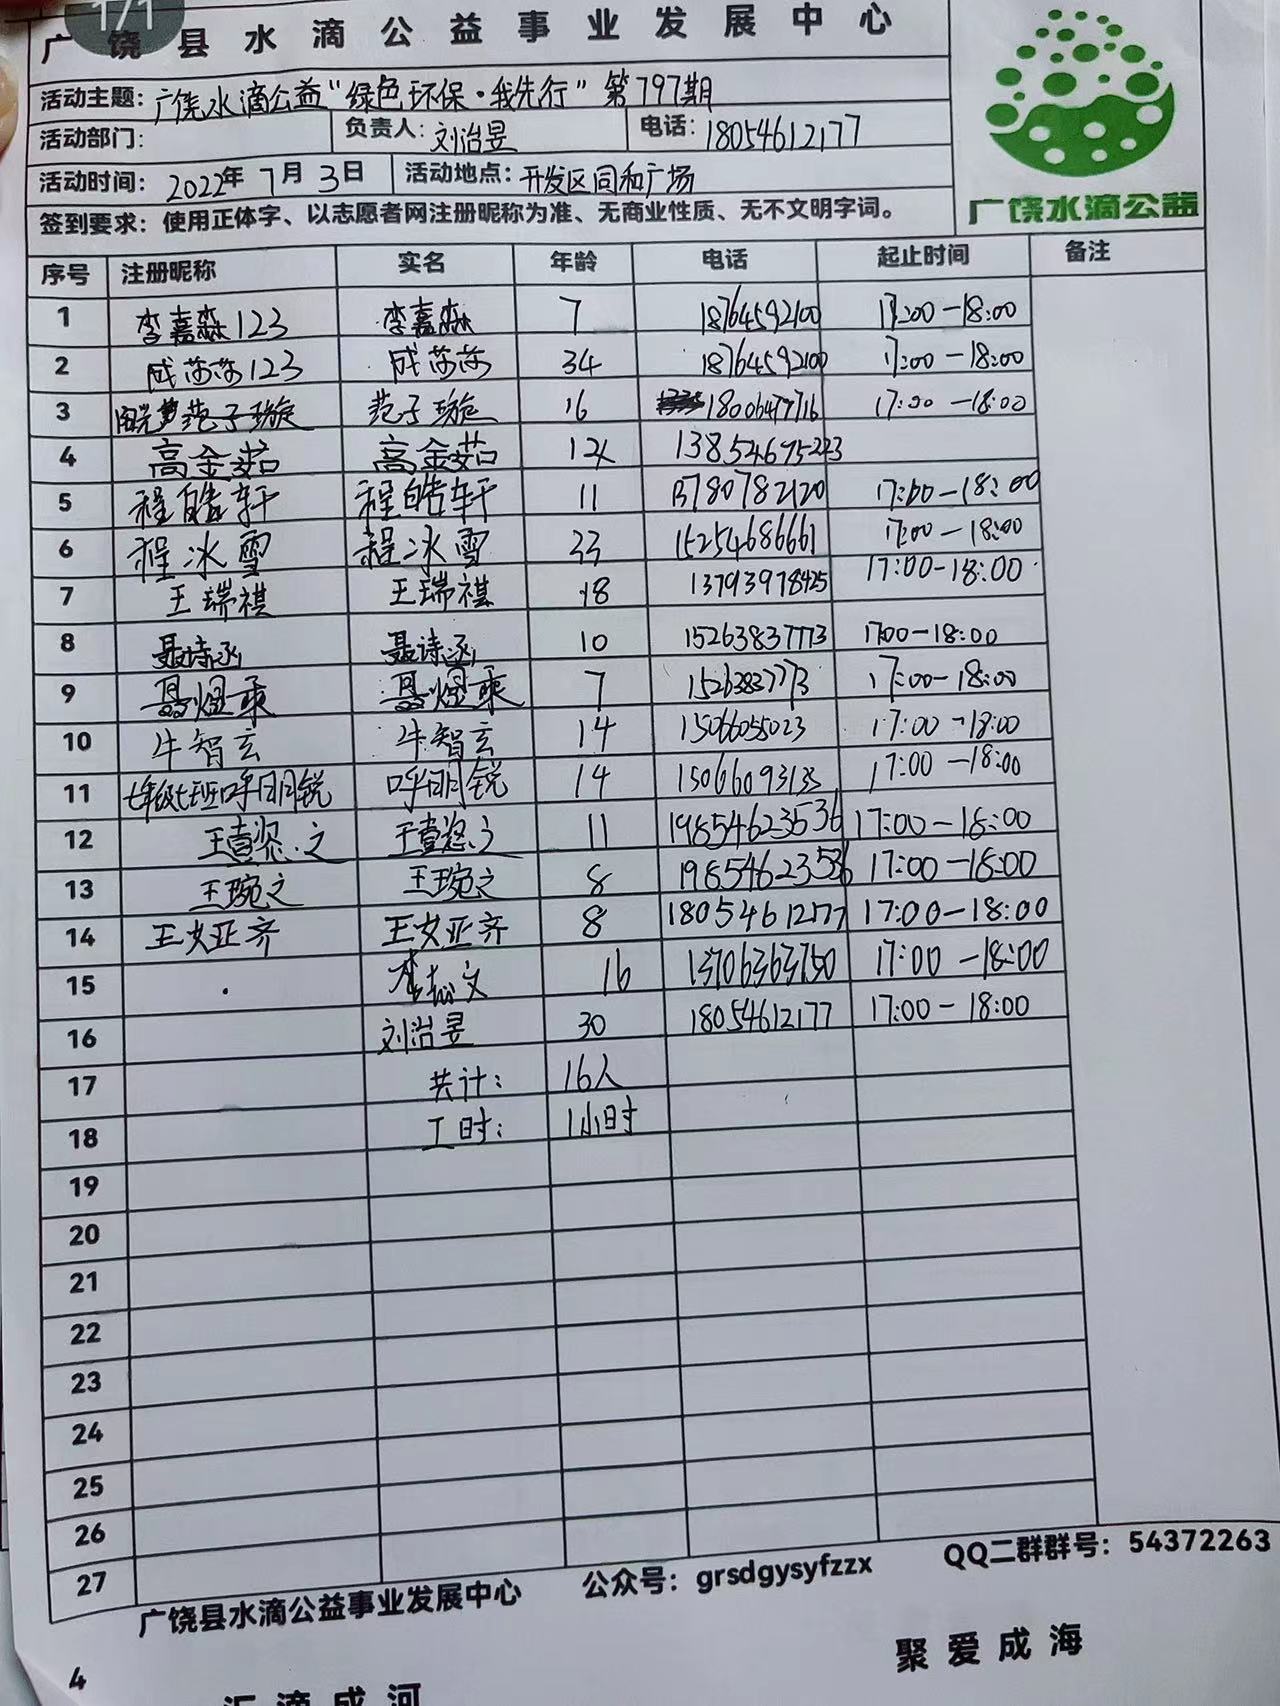 1/1
广饶县水滴公益事业发展中心
活动主题：广饶水滴公益“绿色环保·我先行”第797期
活动部门： 负责人：刘治昱 电话：18054612177
活动时间：2022年7月3日 活动地点：开发区同和广场
签到要求：使用正体字、以志愿者网注册昵称为准、无商业性质、无不文明字词。
广饶水滴公益
序号 注册昵称 实名 年龄 电话 起止时间 备注
1 李嘉淼123 李嘉淼 7 18764592100 17:00-18:00
2 成莎莎123 成莎莎 34 18764592100 17:00-18:00
3 范子璇 范子璇 16 18006477716 17:00-18:00
4 高金茹 高金茹 12 13854675223
5 程皓轩 程皓轩 11 13780782120 17:00-18:00
6 程冰雪 程冰雪 33 15254686661 17:00-18:00
7 王瑞祺 王瑞祺 18 13793978425 17:00-18:00
8 聂诗函 聂诗函 10 15263837773 17:00-18:00
9 聂煜乘 聂煜乘 7 15263837773 17:00-18:00
10 牛智玄 牛智玄 14 15066055023 17:00-18:00
11 七年级七班呼明锐 呼明锐 14 15066093135 17:00-18:00
12 王壹之 王壹之 11 19854623536 17:00-18:00
13 王琬之 王琬之 8 19854623536 17:00-18:00
14 王女亚齐 王女亚齐 8 18054612177 17:00-18:00
15 李文 16 13706363750 17:00-18:00
16 刘治昱 30 18054612177 17:00-18:00
17 共计： 16人
18 工时： 1小时
19
20
21
22
23
24
25
26
27
广饶县水滴公益事业发展中心 公众号：grsdgysyfzzx QQ二群群号：54372263
4 汇滴成河 聚爱成海